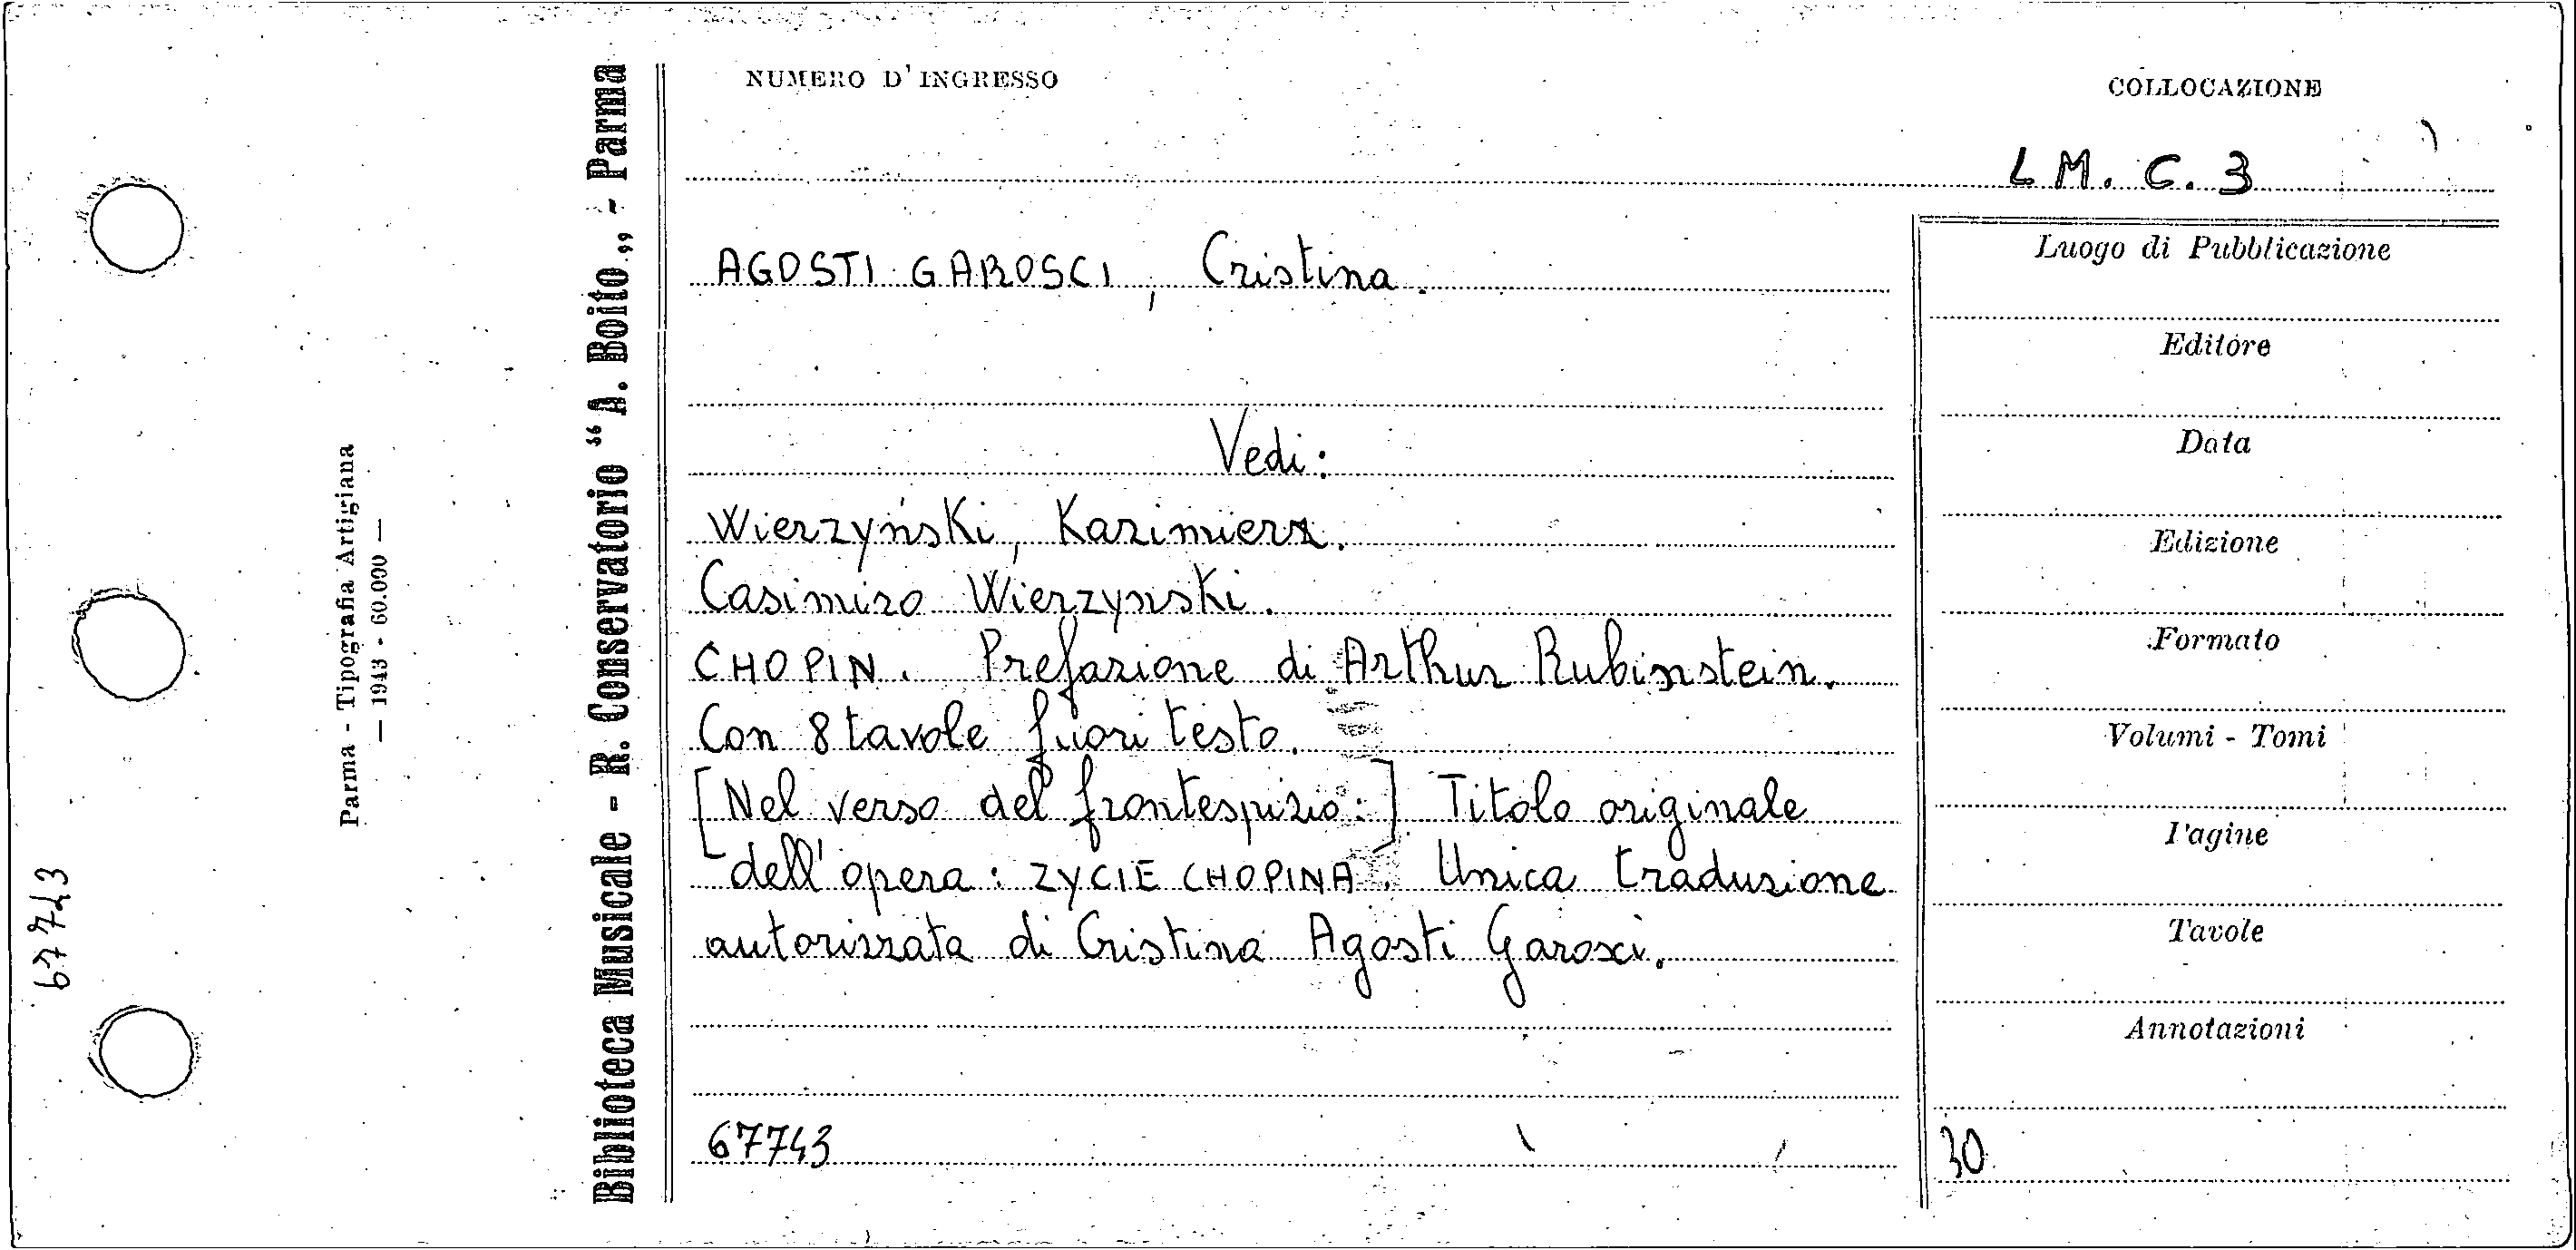 NUMERO D'INGRESSO
COLLOCAZIONE
LM. C. 3
AGOSTI GAROSCI, Cristina.
Vedi:
Wierzyński, Kazimierz.
Casimiro Wierzynski.
CHOPIN. Prefazione di Arthur Rubinstein.
Con 8 tavole fuori testo.
[Nel verso del frontespizio:] Titolo originale
dell'opera: ZYCIE CHOPINA. Unica traduzione
autorizzata di Cristina Agosti Garosci.
67743
Luogo di Pubblicazione
Editore
Data
Edizione
Formato
Volumi - Tomi
Pagine
Tavole
Annotazioni
30
Biblioteca Musicale - R. Conservatorio “A. Boito„ - Parma
Parma - Tipografia Artigiana
— 1943 - 60.000 —
67743